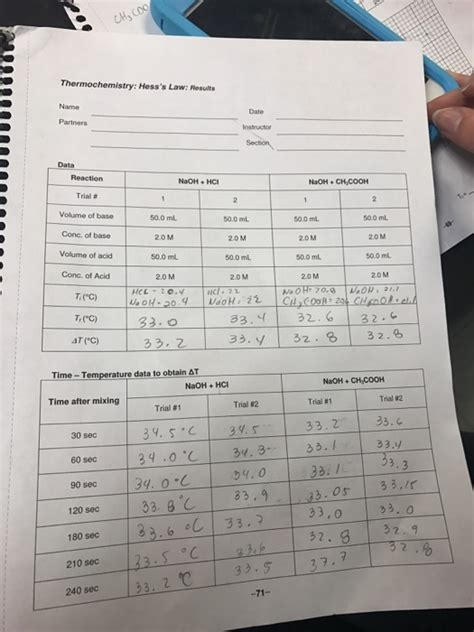 CH₃COO
Thermochemistry: Hess's Law: Results
Name
Date
Partners
Instructor
Section
Data
Reaction NaOH + HCl NaOH + CH₃COOH
Trial # 1 2 1 2
Volume of base 50.0 mL 50.0 mL 50.0 mL 50.0 mL
Conc. of base 2.0 M 2.0 M 2.0 M 2.0 M
Volume of acid 50.0 mL 50.0 mL 50.0 mL 50.0 mL
Conc. of Acid 2.0 M 2.0 M 2.0 M 2.0 M
Tᵢ (°C) HCl = 20.4 HCl = 22 NaOH = 20.8 NaOH = 21.1
NaOH = 20.4 NaOH = 22 CH₃COOH = CH₃COOH =
T_f (°C) 33.0 33.4 32.6 32.6
ΔT (°C) 33.2 33.4 32.8 32.8
Time – Temperature data to obtain ΔT
Time after mixing NaOH + HCl NaOH + CH₃COOH
Trial #1 Trial #2 Trial #1 Trial #2
30 sec 34.5°C 34.5 33.2 33.6
60 sec 34.0°C 34.3 33.1 33.4
90 sec 34.0°C 34.0 33.1 33.3
120 sec 33.8°C 33.9 33.05 33.15
180 sec 33.6°C 33.7 33.0 33.0
210 sec 33.5°C 33.6 32.8 32.9
240 sec 33.2°C 33.5 37.7 32.8
–71–